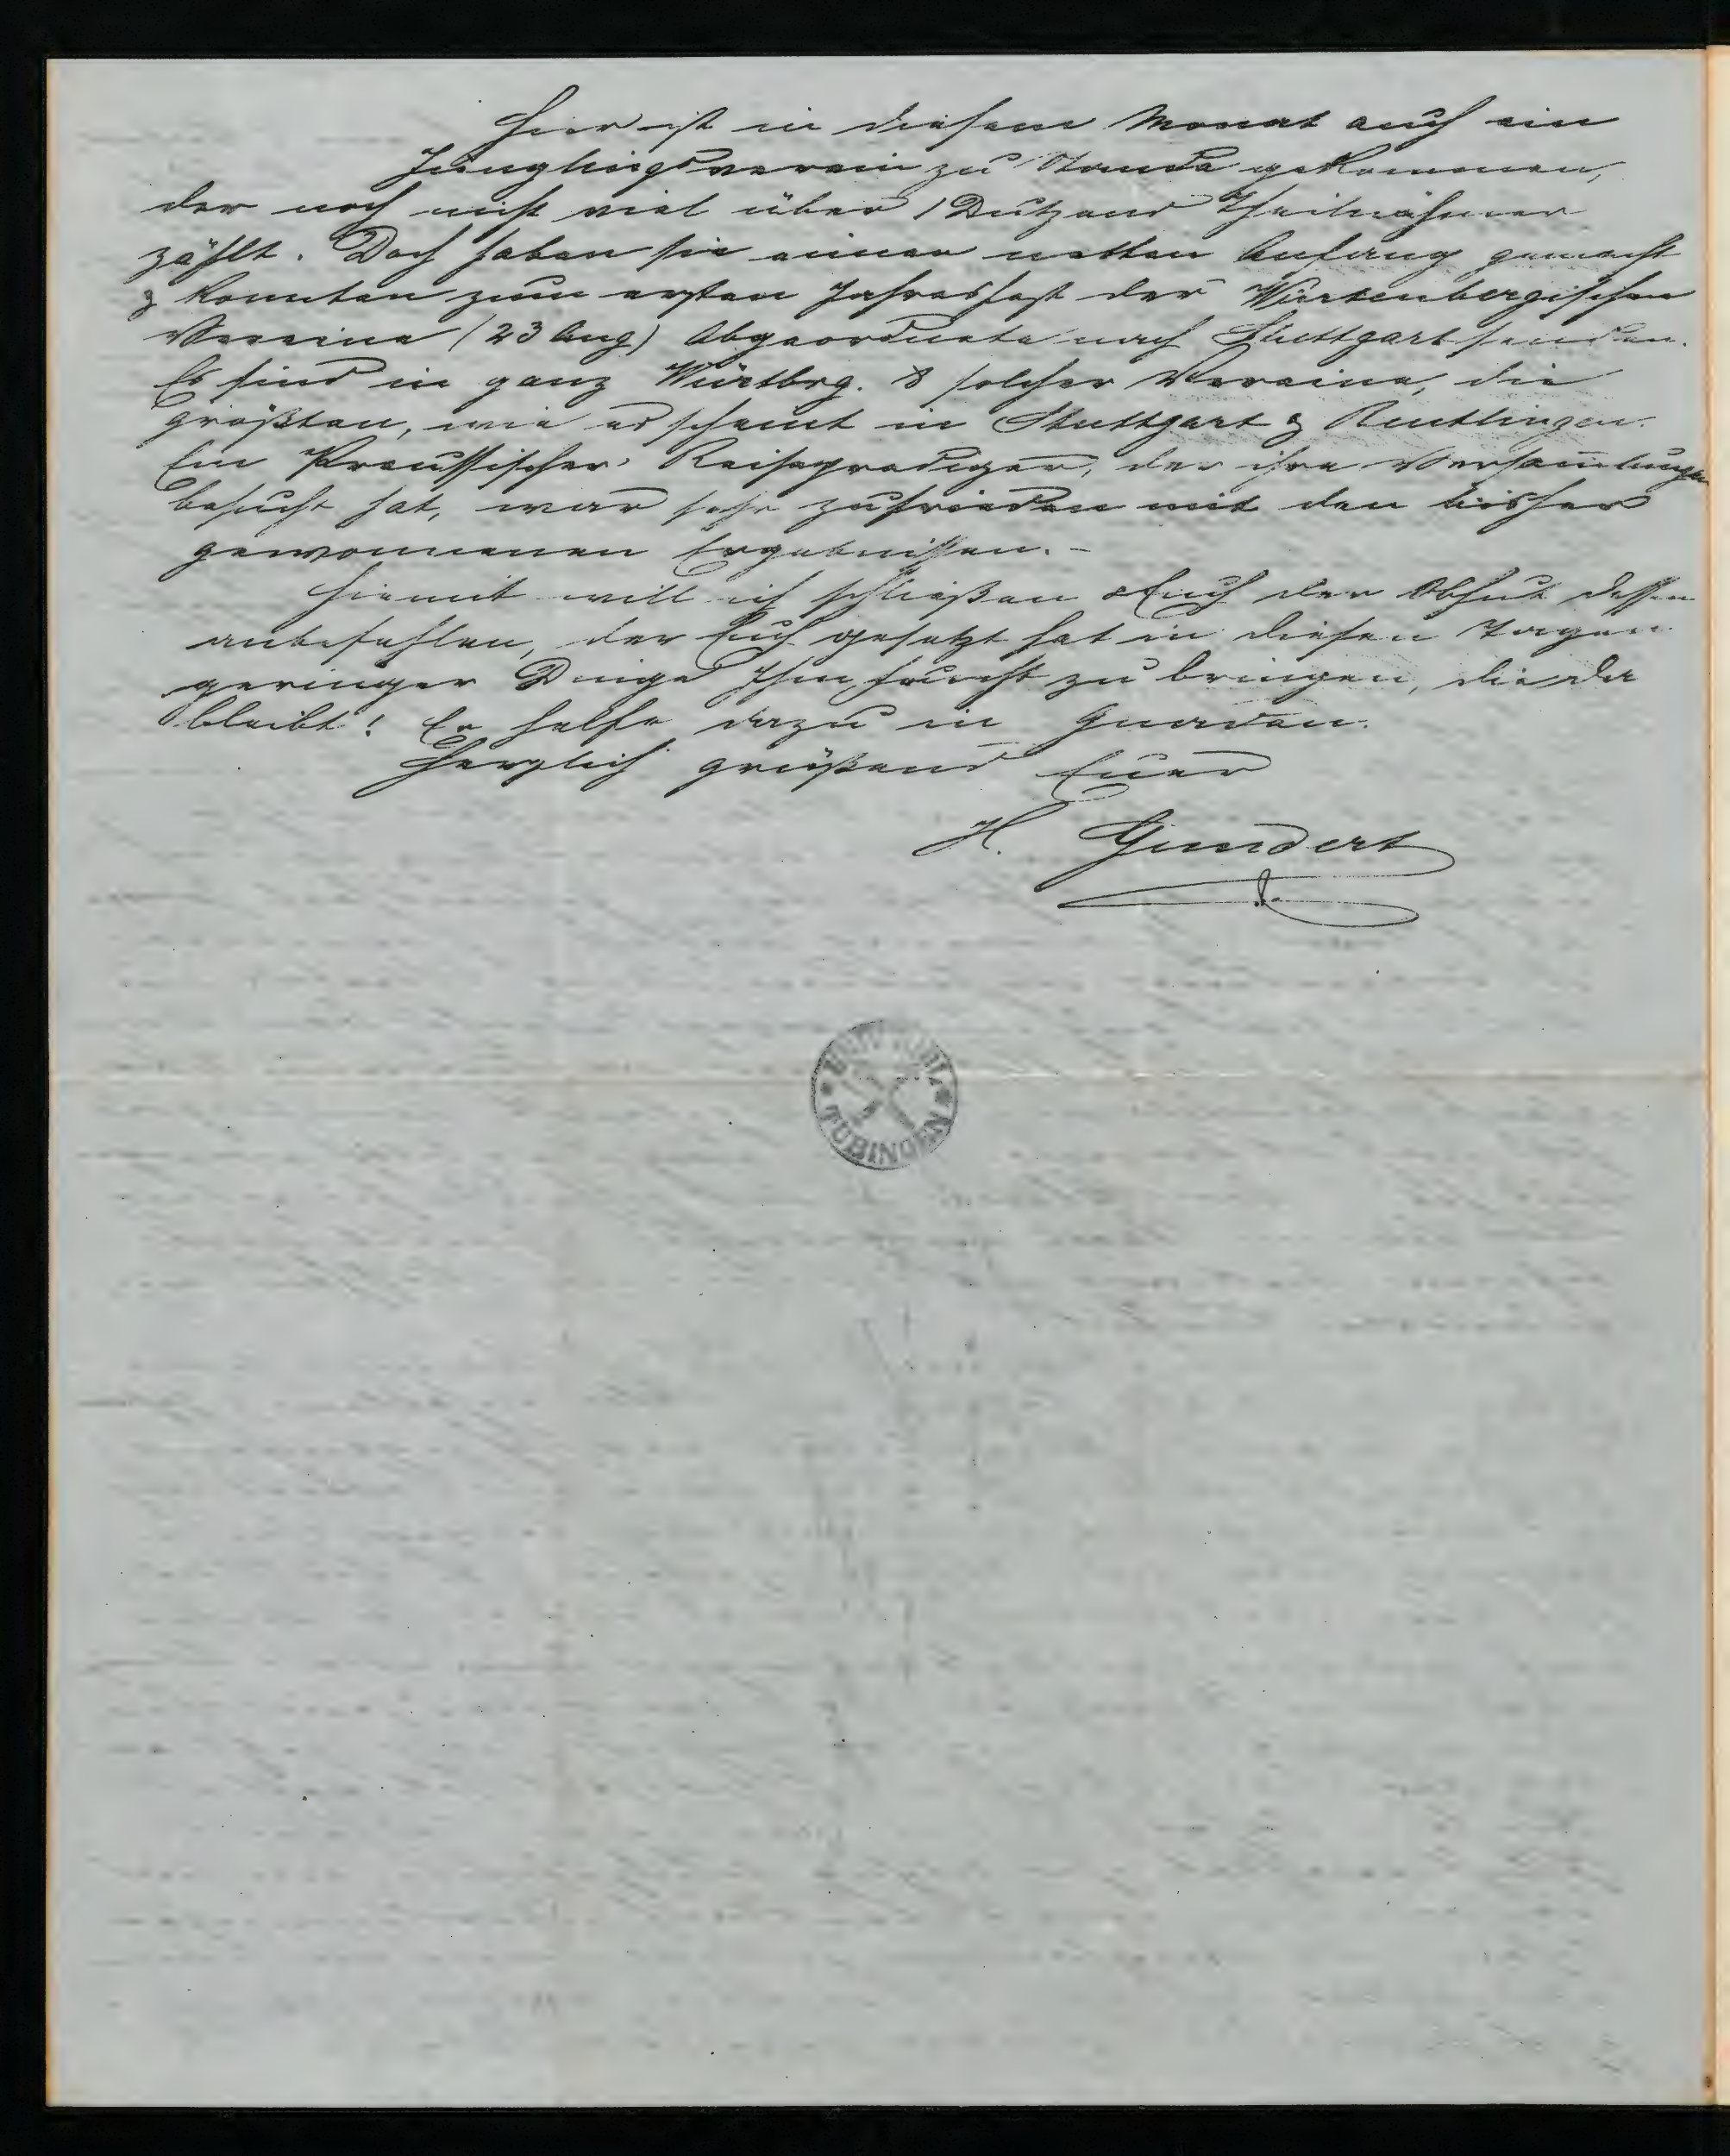 Hier ist in diesem Monat auch ein
Jünglingsverein zu Stande gekommen,
der noch nicht viel über 1 Dutzend Theilnehmer
zählt. Doch haben sie einen netten Anfang gemacht
& konnten zum ersten Jahresfest der Würtenbergischen
Vereine (23 Aug) Abgeordnete nach Stuttgart senden.
Es sind in ganz Würtbrg. 8 solcher Vereine, die
größten, wie es scheint in Stuttgart & Reutlingen.
Ein Preussischer Reiseprediger, der ihre Versammlungen
besucht hat, war sehr zufrieden mit den bisher
gewonnenen Ergebnissen. -
Hiemit will ich schließen & Euch der Obhut dessen
anbefehlen, der Euch gesetzt hat in diesen Tagen
geringer Dinge Ihm Frucht zu bringen, die da
bleibt! Er helfe dazu in Gnaden.
Herzlich grüßend Euer
H. Gundert
UNIV. BIBL.
TÜBINGEN